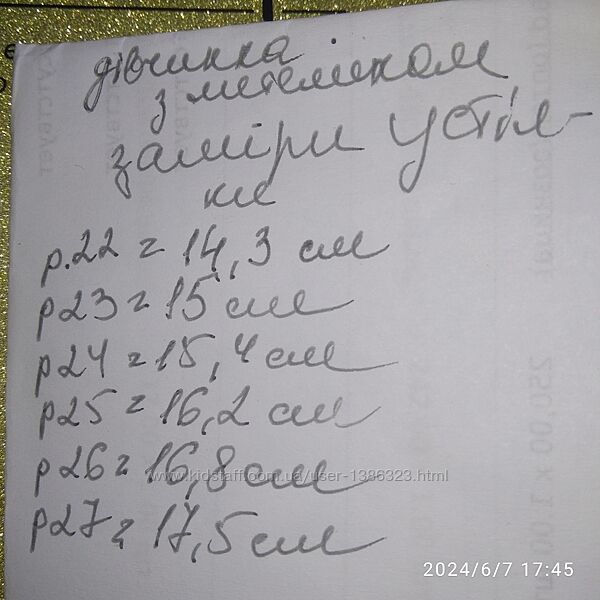 дівчинка
з метеликом
заміри устіл-
ки
р.22 = 14,3 см
р23 = 15 см
р24 = 15,4 см
р25 = 16,2 см
р26 = 16,8 см
www.kidstaff.com.ua/user-1386323.html
р27 = 17,5 см
2024/6/7 17:45